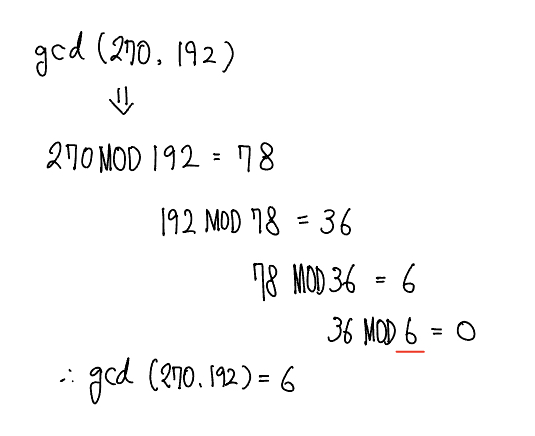 gcd (270, 192)
⇓
270 MOD 192 = 78
192 MOD 78 = 36
78 MOD 36 = 6
36 MOD 6 = 0
∴ gcd (270, 192) = 6